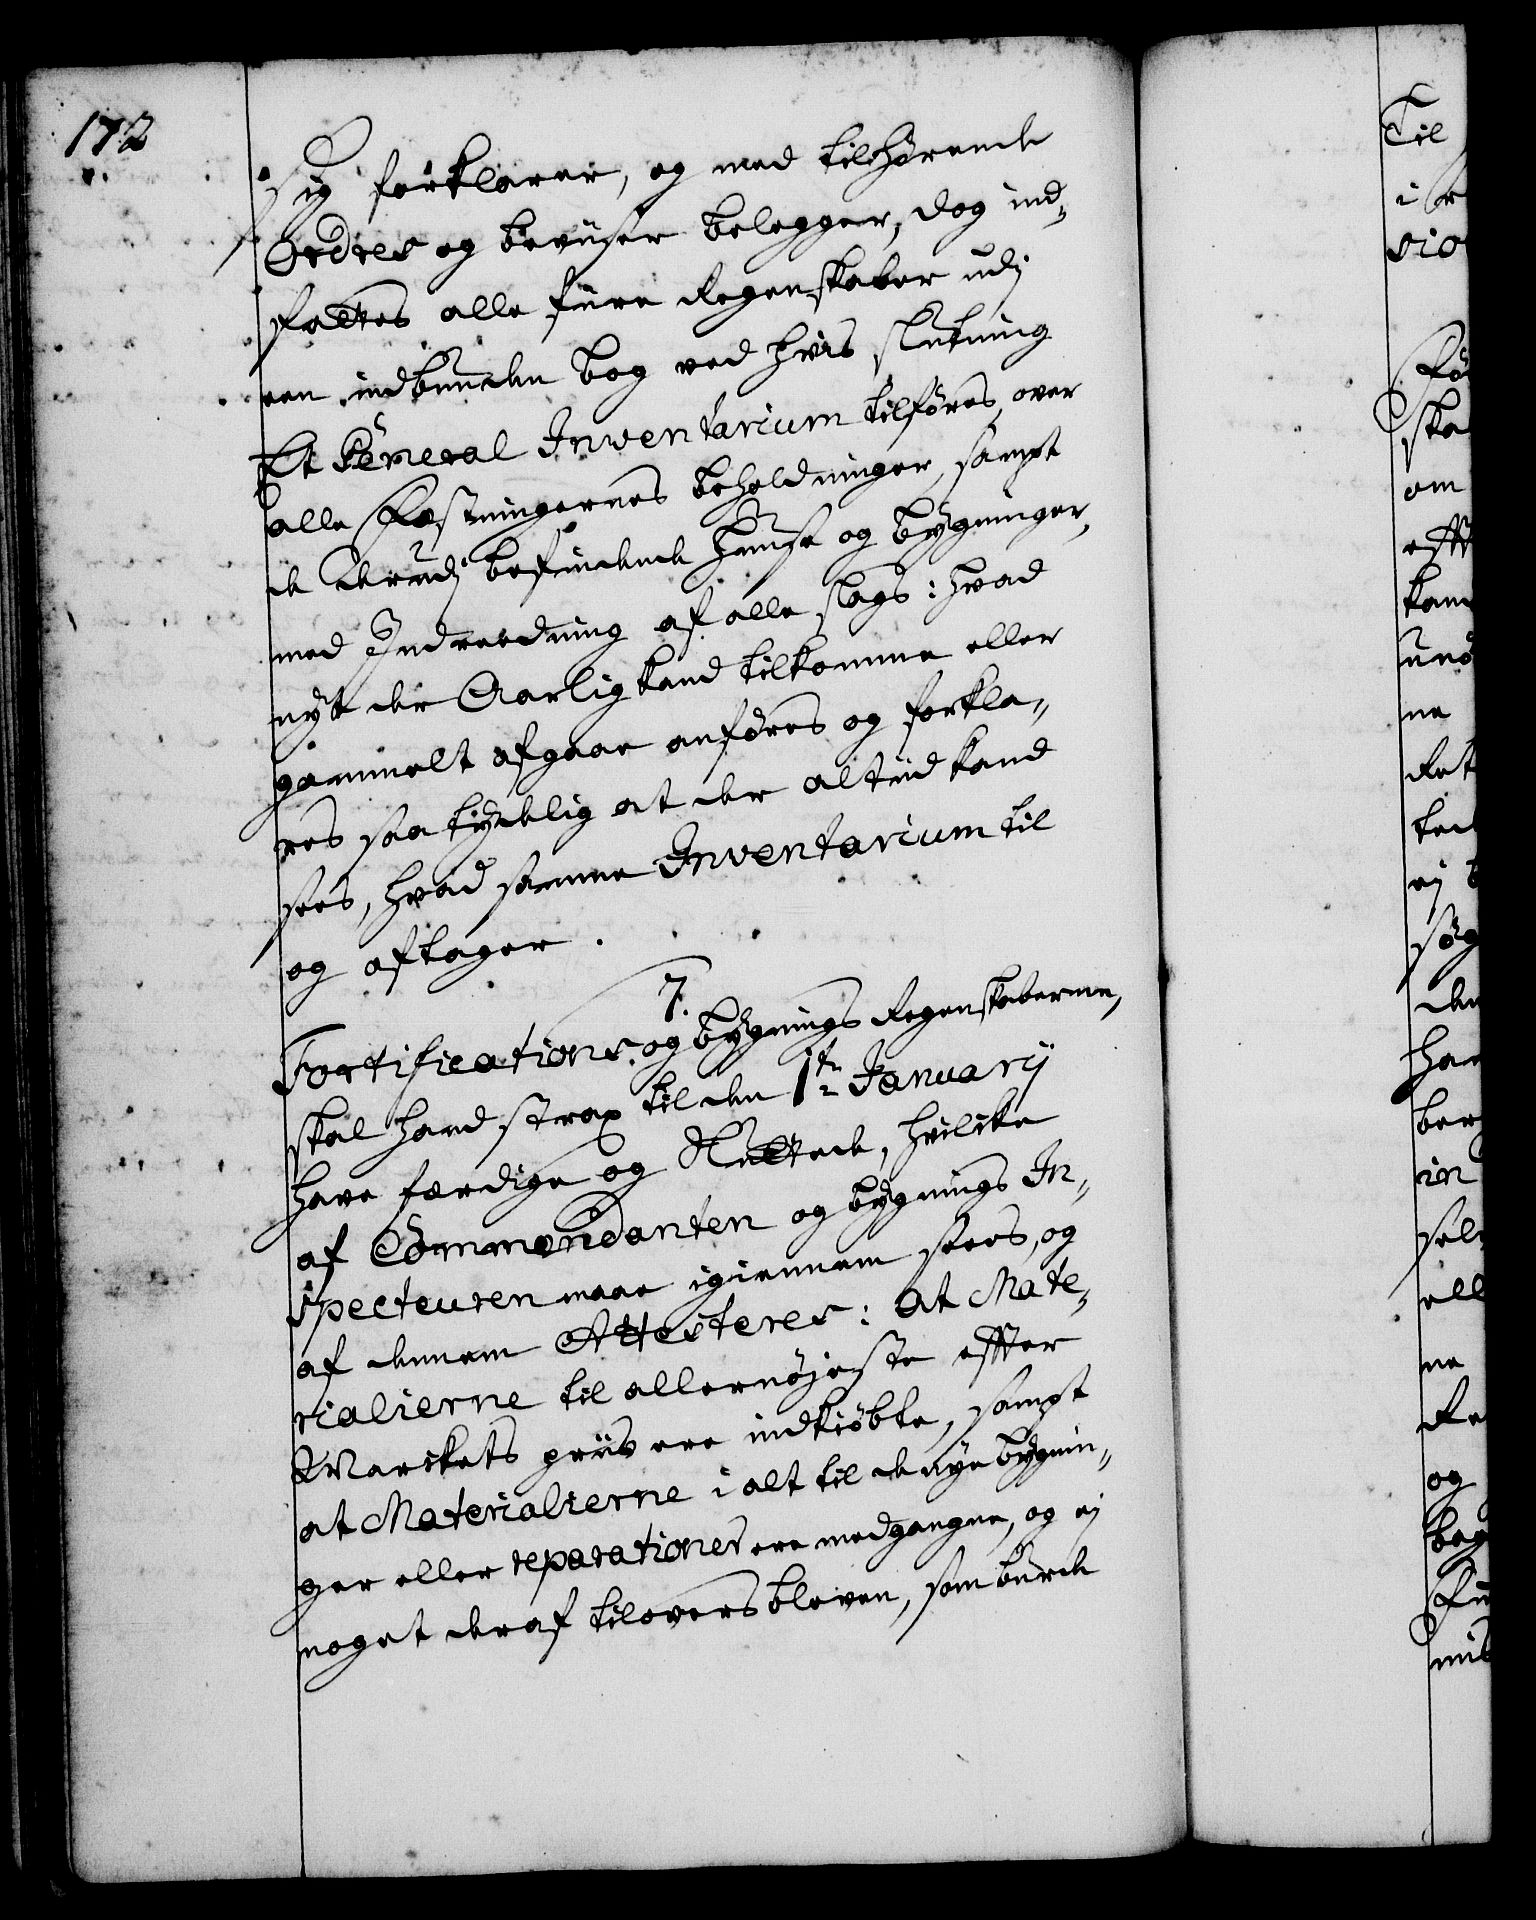 172
sig forklarer, og med tilhørende
Ordres og beviiser belegger, dog ind„
fattes alle fiire Regenskaber udj
een indbunden bog ved hvis slutning
Et General Inventarium tilføres, over
alle Fæstningernes beholdninger, sampt
de derudj befindende Huuse og bygninger,
med Indreedning af alle slags: hvad
nyt der Aarlig kand tilkomme eller
gammelt afgaae anføres og forkla„
res saa tydelig at der altiid kand
sees, hvad samme Inventarium til
og aftager.
7.
Fortifications og bygnings Regenskaberne,
skal hand strax til den 1te January
have færdige og sluttede, hvilcke
af Commendanten og bygnings In„
specteuren maae igiennem sees, og
af dennem Attesteres: at Mate„
rialierne til allernøjeste effter
Marckets priis ere indkiøbte, sampt
at Materialierne i alt til de nye bygnin„
ger eller reparationer ere medgangne, og ej
noget deraf tilovers bleven, som burde
Til
i
ska
om
ne
ej
den
in
ell
ne
og